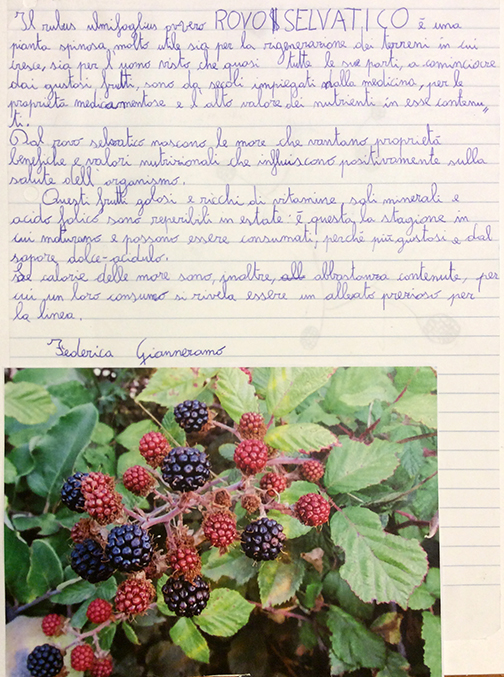 Il rubus ulmifoglius ovvero ROVO SELVATICO è una
pianta spinosa molto utile sia per la rigenerazione dei terreni in cui
cresce, sia per l'uomo visto che quasi tutte le sue parti, a cominciare
dai gustosi frutti, sono da secoli impiegati nella medicina, per le
proprietà medicamentose e l'alto valore dei nutrienti in esse contenu"
ti.
Dal rovo selvatico nascono le more che vantano proprietà
benefiche e valori nutrizionali che influiscono positivamente sulla
salute dell'organismo.
Questi frutti golosi e ricchi di vitamine sali minerali e
acido folico sono reperibili in estate: è questa la stagione in
cui maturano e possono essere consumati, perché più gustosi e dal
sapore dolce-acidulo.
Le calorie delle more sono, inoltre, abbastanza contenute, per
cui un loro consumo si rivela essere un alleato prezioso per
la linea.
Federica Gianneramo